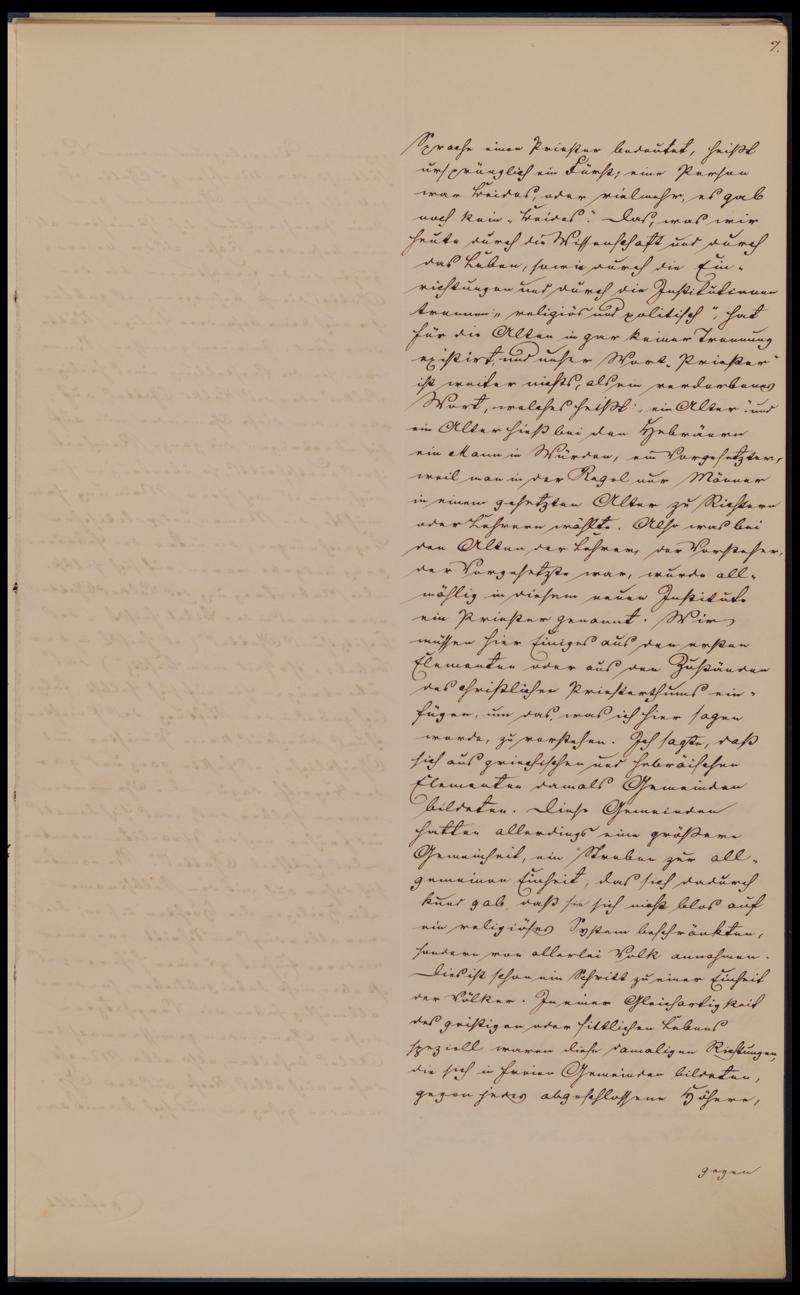 7.
Sprache einen Priester bedeutet, heißt
ursprünglich ein Fürst; eine Person
war Beides, oder vielmehr, es gab
noch kein „Beides“. Das, was wir
heute durch die Wissenschaft und durch
das Leben, sowie durch die Ein-
richtungen und durch die Institutionen
trennen: „religiös und politisch“, hat
für die Alten in gar keiner Trennung
existirt, und unser Wort „Priester“
ist weiter nichts, als ein verdorbenes
Wort, welches heißt: „ein Alter“ und
ein Alter hieß bei den Hebräern
ein Mann in Würden, ein Vorgesetzter,
weil man in der Regel nur Männer
in einem gesetzten Alter zu Richtern
oder Lehrern wählte. Also was bei
den Alten der Lehrer, der Vorsteher,
der Vorgesetzte war, wurde all-
mählig in diesem neuen Institute
ein Priester genannt. Wir
müssen hier Einiges aus den ersten
Elementen oder aus den Zuständen
des christlichen Priesterthums ein-
fügen, um das, was ich hier sagen
werde, zu verstehen. Ich sagte, daß
sich aus griechischen und hebräischen
Elementen damals Gemeinden
bildeten. Diese Gemeinden
hatten allerdings eine größere
Gemeinheit, ein Streben zur all-
gemeinen Einheit, das sich dadurch
kund gab, daß sie sich nicht blos auf
ein religiöses System beschränkten,
sondern von allerlei Volk annahmen.
Dies ist schon ein Schritt zu einer Einheit
der Völker. In einer Gleichartigkeit
des geistigen oder sittlichen Lebens
speziell waren diese damaligen Richtungen,
die sich in freien Gemeinden bildeten,
gegen jedes abgeschlossene Höhere,
gegen